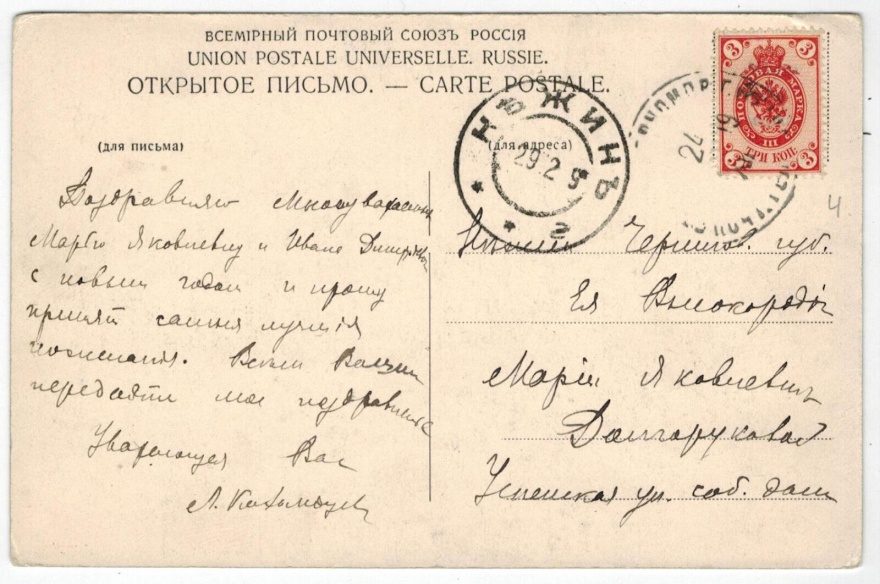 ВСЕМІРНЫЙ ПОЧТОВЫЙ СОЮЗЪ РОССІЯ
UNION POSTALE UNIVERSELLE. RUSSIE.
ОТКРЫТОЕ ПИСЬМО. — CARTE POSTALE.
(для письма)
(для адреса)
НѢЖИНЪ
29 2 5
2
24
3 3
ПОЧТОВАЯ МАРКА
III
ТРИ КОП.
3 3
4
Поздравляю Многоуважаемыхъ
Марію Яковлевну и Ивана
с новым годом и прошу
принять самыя лучшія
пожелания. Всем Вашим
передайте мое поздравленіе
Уважающая Вас
Л.
Нежин Чернигов. губ.
Ея Высокородію
Маріи Яковлевнѣ
Долгоруковой
Успенская ул. соб. дом